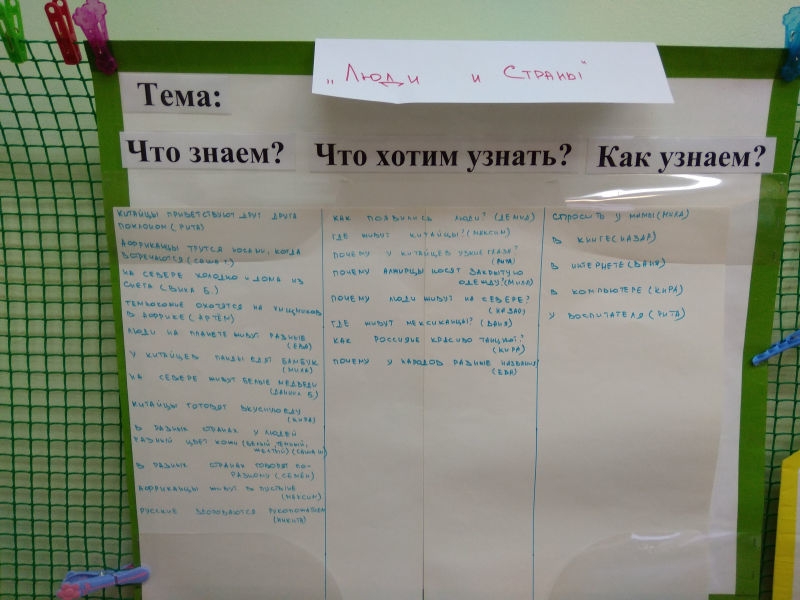 „Люди и Страны"
Тема:
Что знаем?
Что хотим узнать?
Как узнаем?
КИТАЙЦЫ ПРИВЕТСТВУЮТ ДРУГ ДРУГА
ПОКЛОНОМ (РИТА)
АФРИКАНЦЫ ТРУТСЯ НОСАМИ, КОГДА
ВСТРЕЧАЮТСЯ (САША Т)
НА СЕВЕРЕ ХОЛОДНО И ДОМА ИЗ
СНЕГА (ВИКА Б.)
ТЕМНОКОЖИЕ ОХОТЯТСЯ НА ХИЩНИКОВ
В АФРИКЕ (АРТЁМ)
ЛЮДИ НА ПЛАНЕТЕ ЖИВУТ РАЗНЫЕ
(ЕВА)
У КИТАЙЦЕВ ПАНДЫ ЕДЯТ БАМБУК
(МИЛА)
НА СЕВЕРЕ ЖИВУТ БЕЛЫЕ МЕДВЕДИ
(ДАНИИЛ Б.)
КИТАЙЦЫ ГОТОВЯТ ВКУСНУЮ ЕДУ
(КИРА)
В РАЗНЫХ СТРАНАХ У ЛЮДЕЙ
РАЗНЫЙ ЦВЕТ КОЖИ (БЕЛЫЙ, ТЕМНЫЙ,
ЖЕЛТЫЙ) (САША Ш)
В РАЗНЫХ СТРАНАХ ГОВОРЯТ ПО-
РАЗНОМУ (СЕМЁН)
АФРИКАНЦЫ ЖИВУТ В ПУСТЫНЕ
(МАКСИМ)
РУССКИЕ ЗДОРОВАЮТСЯ РУКОПОЖАТИЕМ
(НИКИТА)
КАК ПОЯВИЛИСЬ ЛЮДИ? (ДЕМИД)
ГДЕ ЖИВУТ КИТАЙЦЫ? (МАКСИМ)
ПОЧЕМУ У КИТАЙЦЕВ УЗКИЕ ГЛАЗА?
(РИТА)
ПОЧЕМУ АЛЖИРЦЫ НОСЯТ ЗАКРЫТУЮ
ОДЕЖДУ? (МИЛА)
ПОЧЕМУ ЛЮДИ ЖИВУТ НА СЕВЕРЕ?
(НАЗАР)
ГДЕ ЖИВУТ МЕКСИКАНЦЫ? (ВАНЯ)
КАК РОССИЯНЕ КРАСИВО ТАНЦУЮТ?
(КИРА)
ПОЧЕМУ У НАРОДОВ РАЗНЫЕ НАЗВАНИЯ?
(ЕВА)
СПРОСИТЬ У МАМЫ (МИЛА)
В КНИГЕ (НАЗАР)
В ИНТЕРНЕТЕ (ВАНЯ)
В КОМПЬЮТЕРЕ (КИРА)
У ВОСПИТАТЕЛЯ (РИТА)